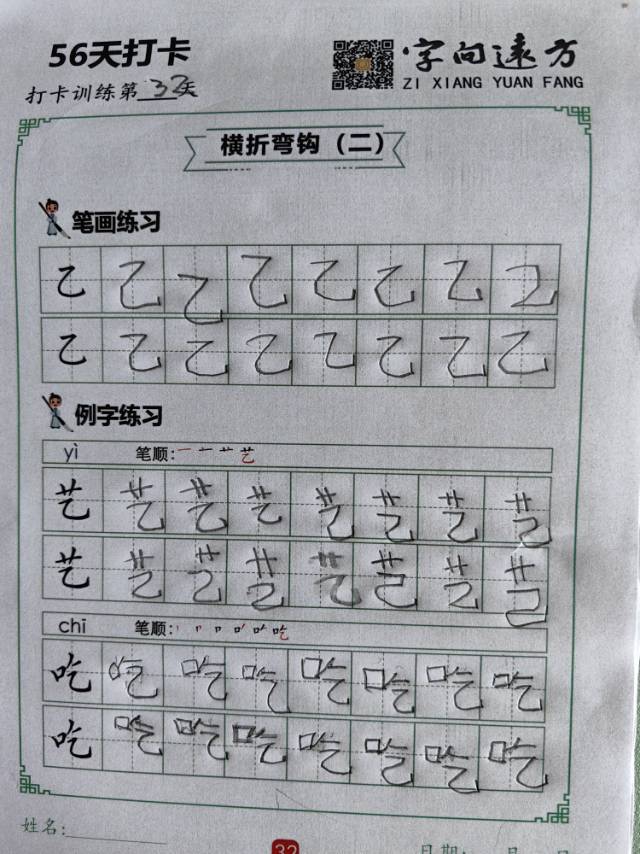 56天打卡
字向远方
ZI XIANG YUAN FANG
打卡训练第32天
横折弯钩（二）
笔画练习
乙 乙 乙 乙 乙 乙 乙 乙
乙 乙 乙 乙 乙 乙 乙 乙
例字练习
yì 笔顺: 一 十 艹 艺
艺 艺 艺 艺 艺 艺 艺 艺
艺 艺 艺 艺 艺 艺 艺 艺
chī 笔顺: 吃
吃 吃 吃 吃 吃 吃 吃 吃
吃 吃 吃 吃 吃 吃 吃 吃
姓名:
32
日期: 月 日